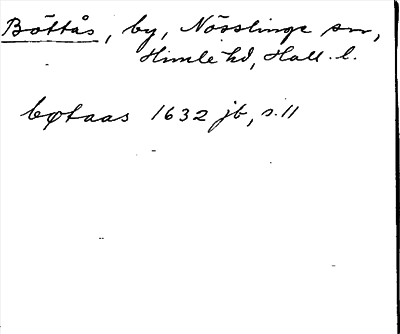 Böttås, by, Nösslinge sn,
Himle hd, Hall. l.
bøtaas 1632 jb, s. 11